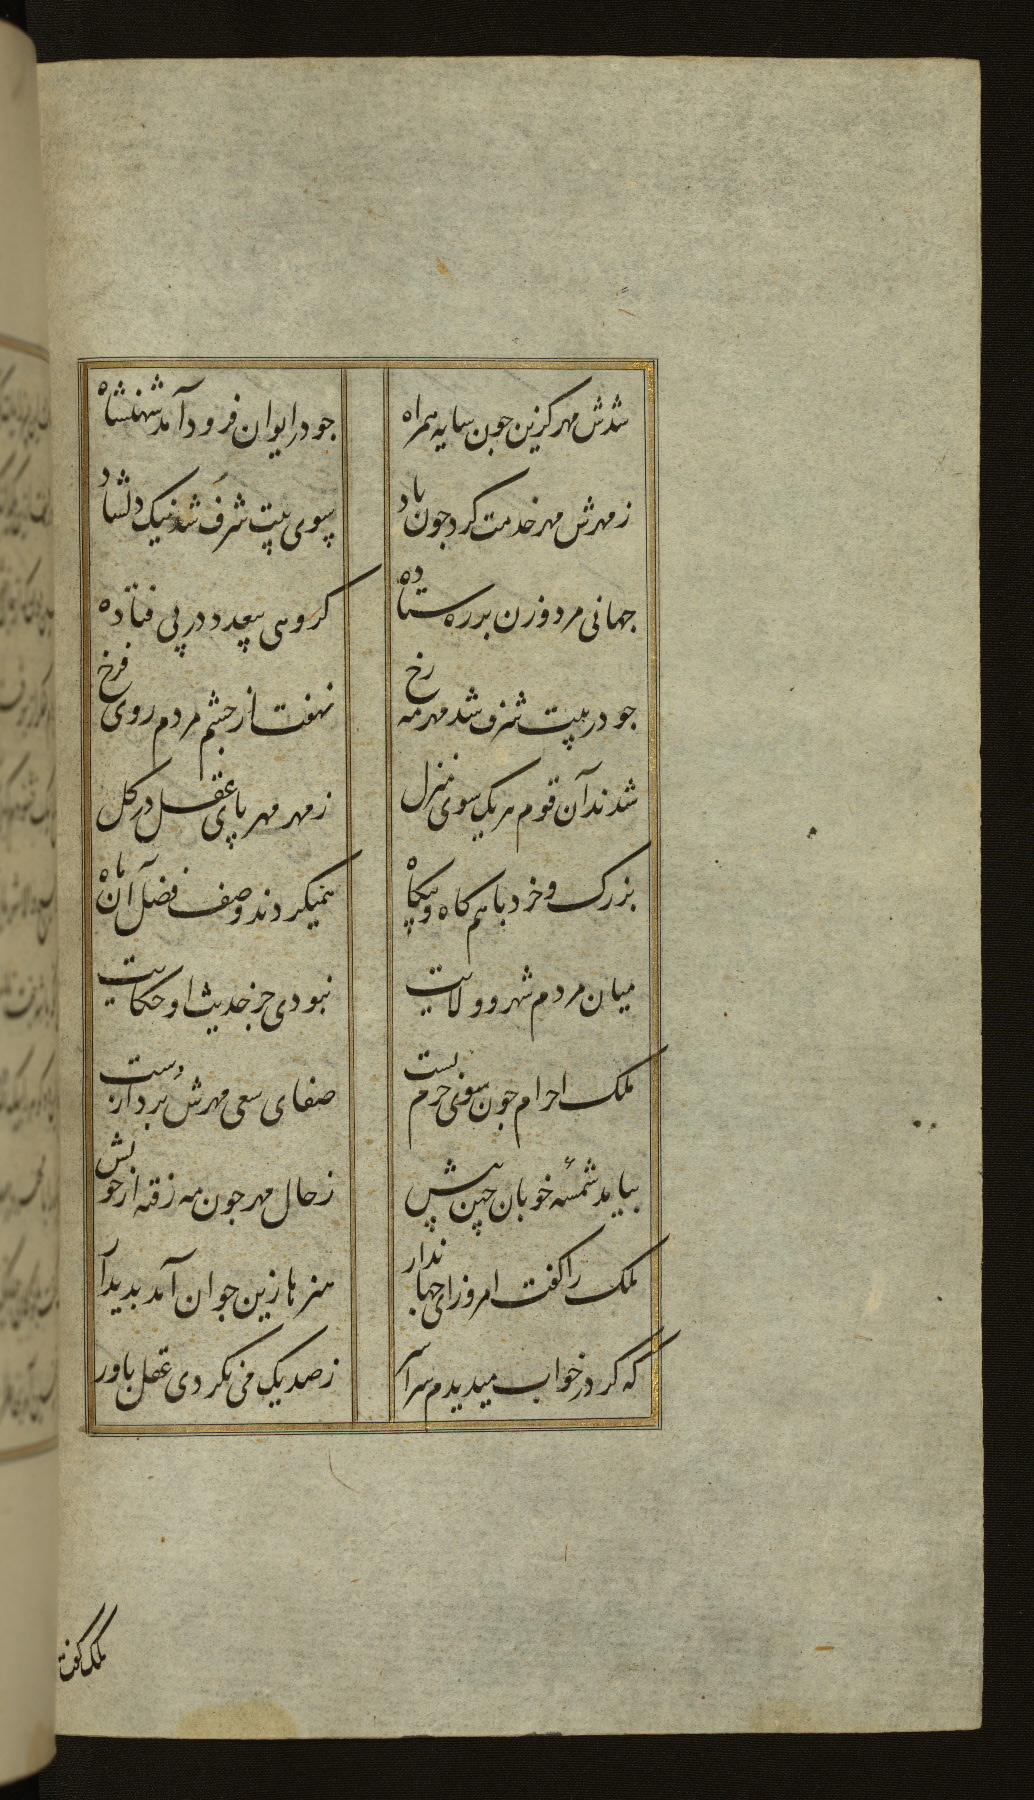 شدش مهر گزین جون سایه همراه
جو در ایوان فرود آمد شهنشاه
ز مهرش مهر خدمت کرد جون باد
بسوی بیت شرف شد نیک دلشاد
جهانی مرد و زن بر ره ستاده
کروهی بیعدد در پی فتاده
جو در بیت شرف شد مهر مه رخ
نهفت از جشم مردم روی فرخ
شدند آن قوم هر یک سوی منزل
ز مهر مهر پای عقل در کل
بزرک و خرد با هم کاه و بیکاه
همیکردند وصف فضل آن ماه
میان مردم شهر و ولایت
نبودی جز حدیث او حکایت
ملک احرام جون سوی حرم بست
صفای سعی مهرش برد از دست
بیامد شمسهٔ خوبان جین پیش
ز حال مهر جون مه رفته از خویش
ملک را کفت امروز ای جهاندار
هنرها زین جوان آمد بدیدار
که کر در خواب میدیدم سراسر
ز صد یک می نکردی عقل باور
ملک کفت